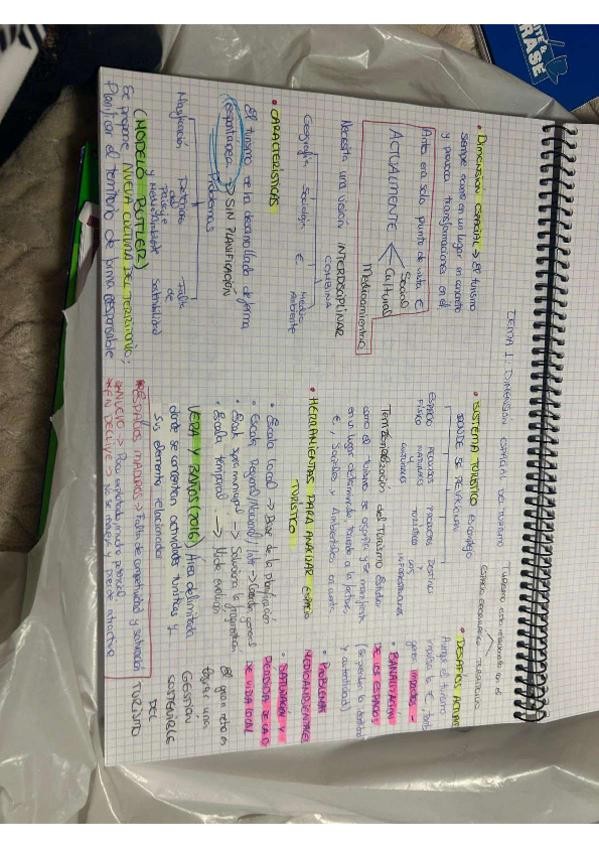 TEMA 1: DIMENSIÓN ESPACIAL DEL TURISMO
Turismo esta relacionado en el
ESPACIO GEOGRÁFICO
• DIMENSIÓN ESPACIAL → El turismo
siempre ocurre en un lugar en concreto
y provoca transformaciones en él
Antes era solo punto de vista €
ACTUALMENTE
Social
Cultural
Medioambiental
Necesita una visión INTERDISCIPLINAR
COMBINA
Geografía Sociología € Medio
Ambiente
• CARACTERÍSTICAS
El turismo se ha desarrollado de forma
espontanea → SIN PLANIFICACIÓN
Problemas
Masificación Deterioro Falta
del de
paisaje Sostenibilidad
y MedioAmbiente
(MODELO BUTLER)
Se propone NUEVA CULTURA DEL TERRITORIO:
Planificar el territorio de forma responsable
• SISTEMA TURÍSTICO
DONDE SE
ESPACIO RECURSOS PRODUCTOS Destino
FÍSICO NATURALES TURÍSTICOS Y
Y
CULTURALES INFRAESTRUCTURAS
Territorialización del Turismo: Estudia
como el turismo se organiza y se manifiesta
en un lugar determinado, tomando a la factores
€, Sociales y Ambientales en cuenta
• HERRAMIENTAS PARA ANALIZAR ESPACIO
TURÍSTICO
• Escala Local → Base de la planificación
• Escala Regional/Nacional/Inter →
• Escala Supramunicipal →
• Escala temporal → Mide evolución
VERA Y BAÑOS (2016) Área delimitada
donde se concentran actividades turísticas y
sus elementos relacionados
* ESPACIOS MADUROS → Falta de competitividad y saturación
* NUEVO → Poco explotado, mucho potencial
* EN DECLIVE → No se renueva y pierde atractivo
• DESAFÍOS ACTUALES
Aunque el turismo
impulsa la €, tamb
genera impactos -
• BANALIZACIÓN
DE LOS ESPACIOS
(se pierden la identidad
y autenticidad)
• PROBLEMAS
MEDIOAMBIENTALES
• SATURACIÓN Y
PÉRDIDA DE CALIDAD
DE VIDA LOCAL
El gran reto es
lograr una
GESTIÓN
SOSTENIBLE
DEL
TURISMO